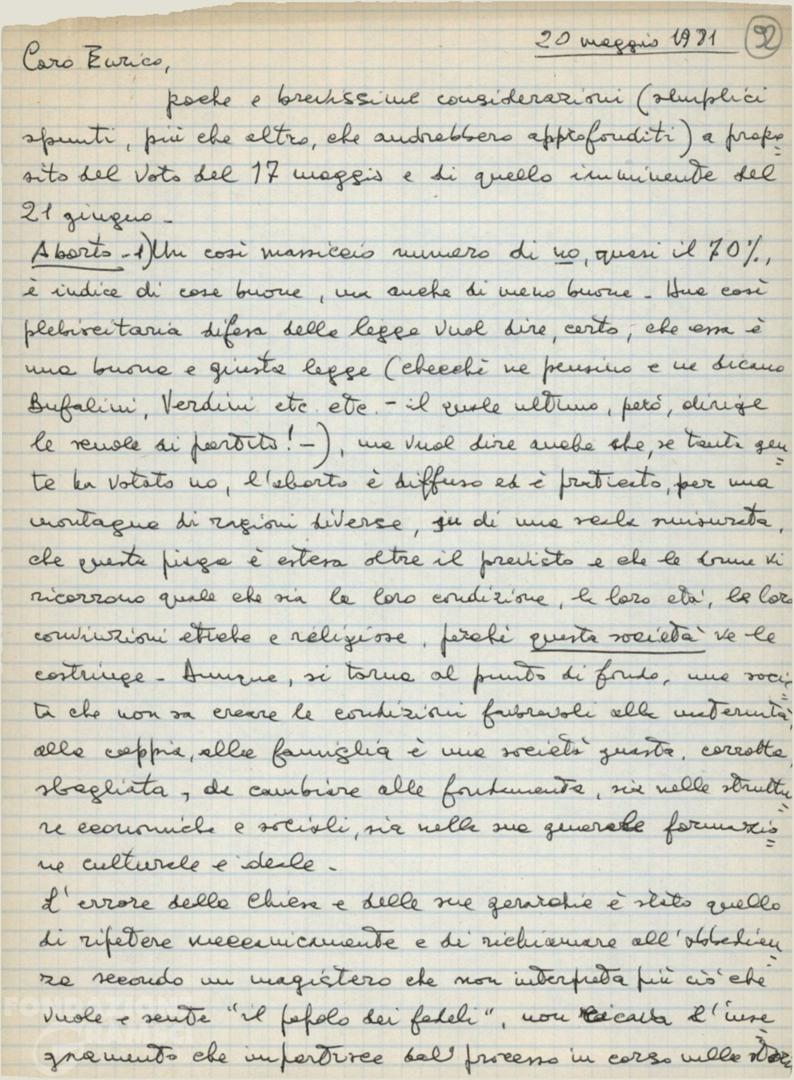 20 maggio 1981 92
Caro Enrico,
poche e brevissime considerazioni (semplici
spunti, più che altro, che andrebbero approfonditi) a propo=
sito del voto del 17 maggio e di quello imminente del
21 giugno -
Aborto - 1) Un così massiccio numero di no, quasi il 70%,
è indice di cose buone, ma anche di meno buone - Una così
plebiscitaria difesa della legge vuol dire, certo, che essa è
una buona e giusta legge (checchè ne pensino e ne dicano
Bufalini, Verdini etc etc - il quale ultimo, però, dirige
le scuole di partito! -), ma vuol dire anche che, se tanta gen=
te ha votato no, l'aborto è diffuso ed è praticato, per una
montagna di ragioni diverse, su di una scala smisurata,
che questa piaga è estesa oltre il previsto e che le donne vi
ricorrono quale che sia la loro condizione, la loro età, le loro
convinzioni etiche e religiose, perchè questa società ve le
costringe - Dunque, si torna al punto di fondo, una socie=
tà che non sa creare le condizioni favorevoli alla maternità,
alla coppia, alla famiglia è una società guasta, corrotta,
sbagliata, da cambiare alle fondamenta, sia nelle struttu=
re economiche e sociali, sia nella sua generale formazio=
ne culturale e ideale -
L'errore della Chiesa e delle sue gerarchie è stato quello
di ripetere meccanicamente e di richiamare all'obbedien
za secondo un magistero che non interpreta più ciò che
vuole e sente "il popolo dei fedeli", non ricava l'inse=
gnamento che impartisce dal processo in corso nella
FONDAZIONE
GRAMSCI